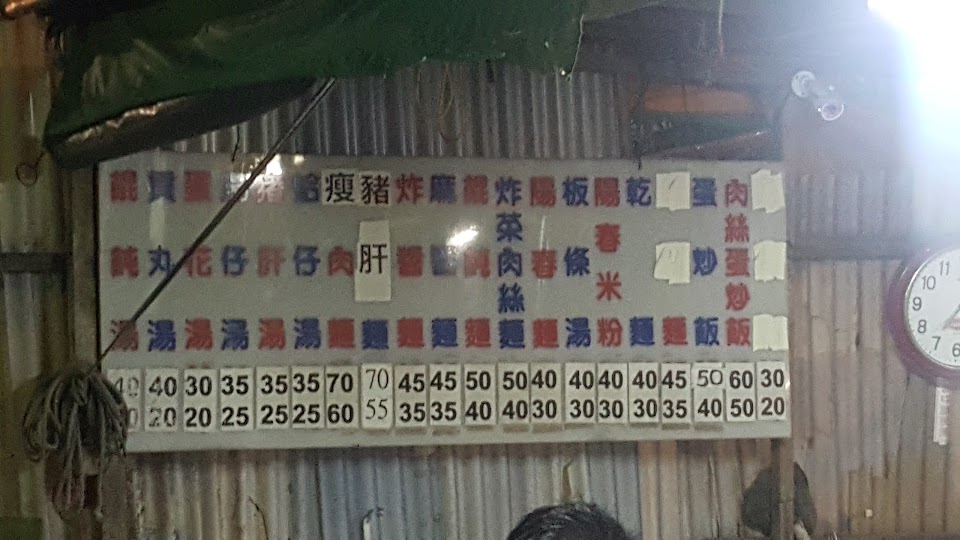 餛飩湯
貢丸湯
蛋花湯
仔湯
豬肝湯
蛤仔湯
瘦肉麵
豬肝麵
炸醬麵
麻醬麵
餛飩麵
炸菜肉絲麵
陽春麵
板條湯
陽春米粉
乾麵
麵
蛋炒飯
肉絲蛋炒飯
40 40 30 35 35 35 70 70 45 45 50 50 40 40 40 40 45 50 60 30
20 20 25 25 25 60 55 35 35 40 40 30 30 30 30 35 40 50 20
12
11
10
9
8
7
6